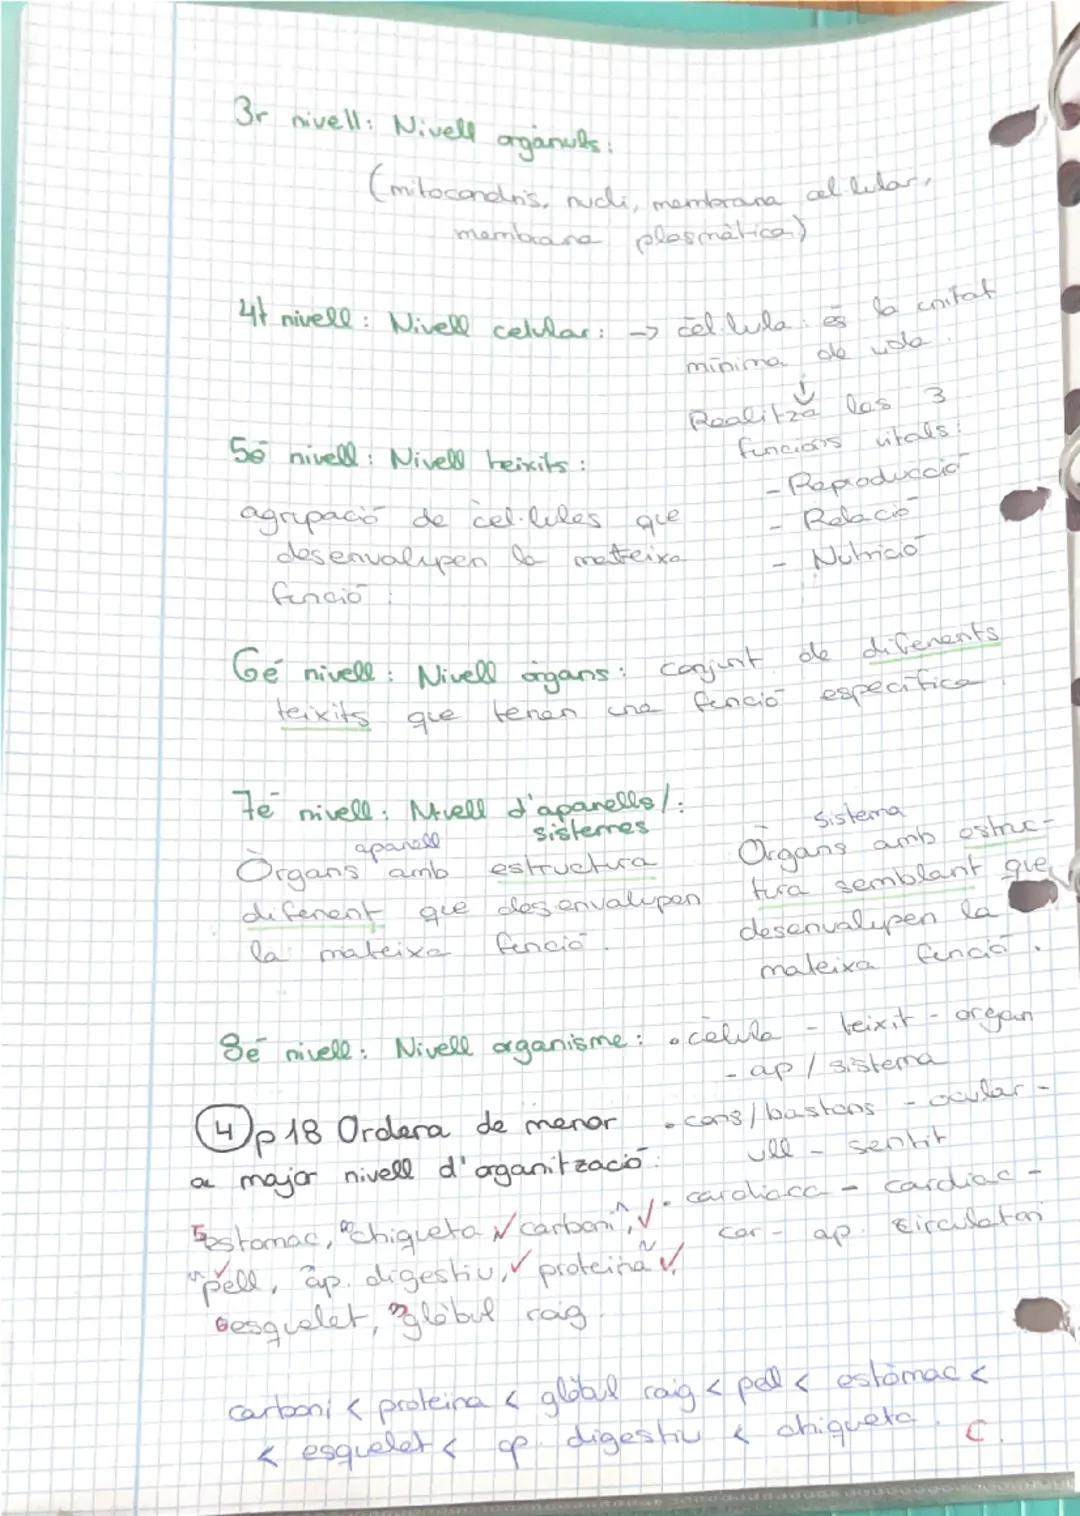 3r nivell: Nivell orgànuls:
(mitocondris, nucli, membrana cel·lular,
membrana plasmàtica)
4t nivell: Nivell celular: -> cèl·lula: és la unitat
mínima de vida.
↓
Realitza les 3
funcions vitals:
- Reproducció
- Relació
- Nutrició
5é nivell: Nivell teixits:
agrupació de cèl·lules que
desenvalupen la mateixa
funció:
6é nivell: Nivell òrgans: conjunt de diferents
teixits que tenen una funció específica.
7é nivell: Nivell d'aparells/:
sistemes
aparell
Òrgans amb estructura
diferent que desenvalupen
la mateixa funció.
Sistema
Òrgans amb estruc-
tura semblant que
desenvalupen la
mateixa funció.
8é nivell: Nivell organisme: • cèlula - teixit - organ
- ap / sistema
• cons/bastons - ocular -
ull - sentit
• cardiaca - cardiac -
cor - ap. circulatori
4 p 18 Ordena de menor
a major nivell d'organització:
5 estomac, 8 chiqueta ✓ carboni 1, ✓
4 pell, ap. digestiu, ✓ proteina 2 ✓,
6 esquelet, 3 glòbul roig.
carboni < proteina < glòbul roig < pell < estòmac <
< esquelet < ap digestiu < chiqueta. C.